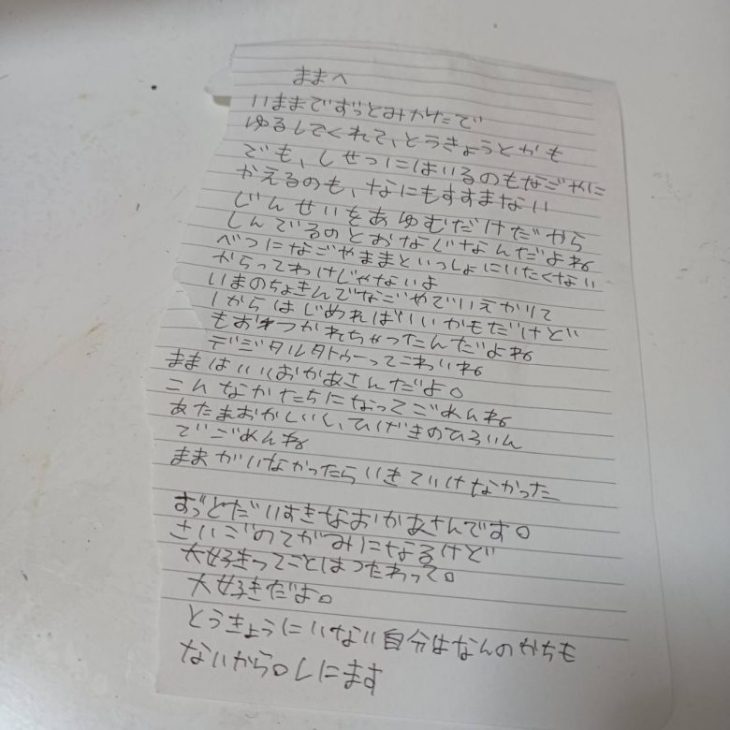 ままへ
いままでずっとみかたで
ゆるしてくれて、とうきょうとかも
でも、しせつにはいるのもなごやに
かえるのも、なにもすすまない
じんせいをあゆむだけだから
しんでるのとおなじなんだよね
べつになごやままといっしょにいたくない
からってわけじゃないよ
いまのちょきんでなごやでいえかりて
1からはじめればいいかもだけど
もおつかれちゃったんだよね
デジタルタトゥーってこわいね
ままはいいおかあさんだよ。
こんなかたちになってごめんね
あたまおかしいし、ひげきのひろいん
でごめんね
ままがいなかったらいきていけなかった
ずっとだいすきなおかあさんです。
さいごのてがみになるけど
大好きってことはつたわって。
大好きだよ。
とうきょうにいない自分はなんのかちも
ないから。しにます